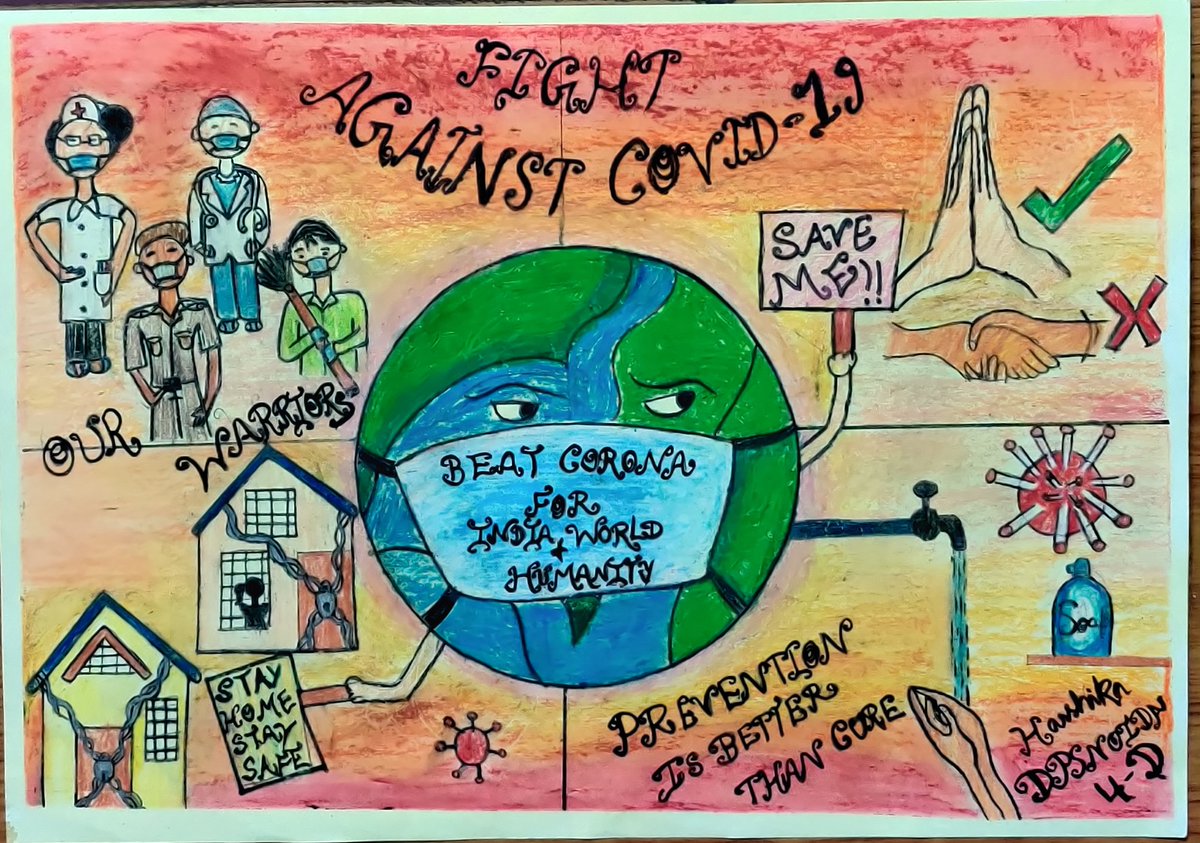 FIGHT
AGAINST COVID-19
SAVE
ME!!
OUR WARRIORS
BEAT CORONA
FOR
INDIA, WORLD
+
HUMANITY
STAY
HOME
STAY
SAFE
Soa
PREVENTION
IS BETTER
THAN CORE
DPSNOIDA
4-D